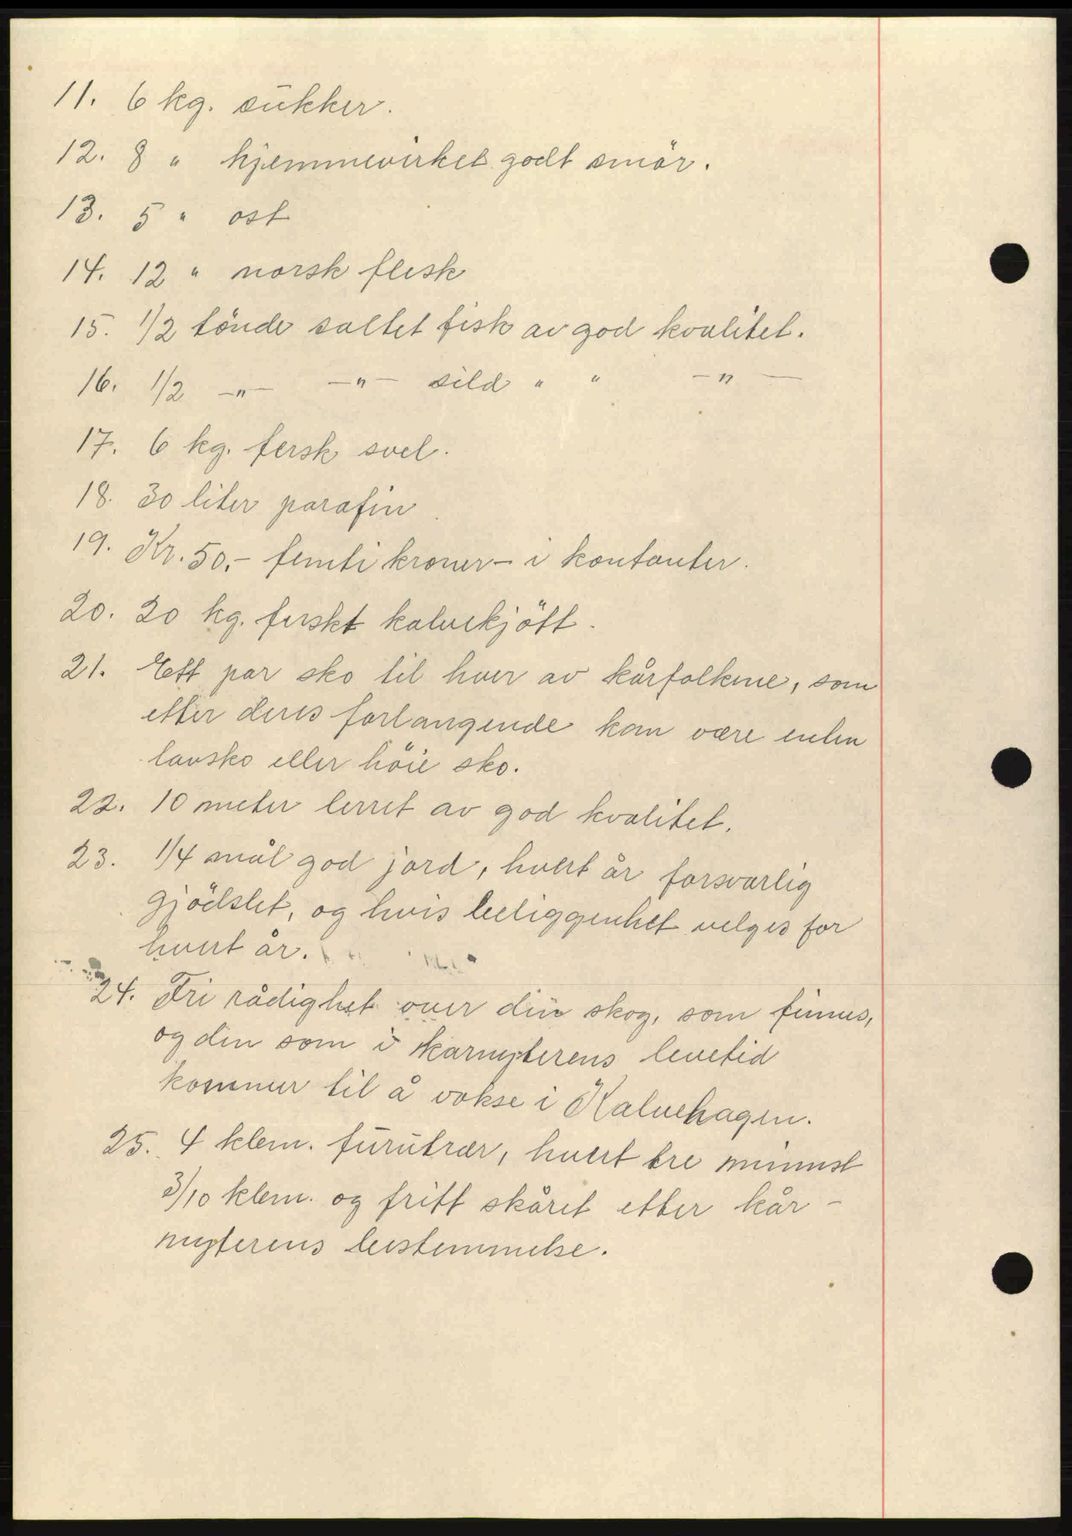 11. 6 kg. sukker.
12. 8 " hjemmevirket godt smör.
13. 5 " ost
14. 12 " norsk flesk
15. 1/2 tönde saltet fisk av god kvalitet.
16. 1/2 -"- -"- sild " " -"-
17. 6 kg. fersk svel.
18. 30 liter parafin
19. Kr. 50,- femti kroner- i kontanter.
20. 20 kg. ferskt kalvekjött.
21. Ett par sko til hver av kårfolkene, som
etter deres forlangende kan være enten
lavsko eller höie sko.
22. 10 meter lerret av god kvalitet.
23. 1/4 mål god jord, hvert år forsvarlig
gjödslet, og hvis beliggenhet velges for
hvert år.
24. Fri rådighet over den skog, som finnes,
og den som i karnyterens levetid
kommer til å vokse i Kalvehagen.
25. 4 kbm. furutrær, hvert tre minnst
3/10 kbm. og fritt skåret etter kår-
nyterens bestemmelse.